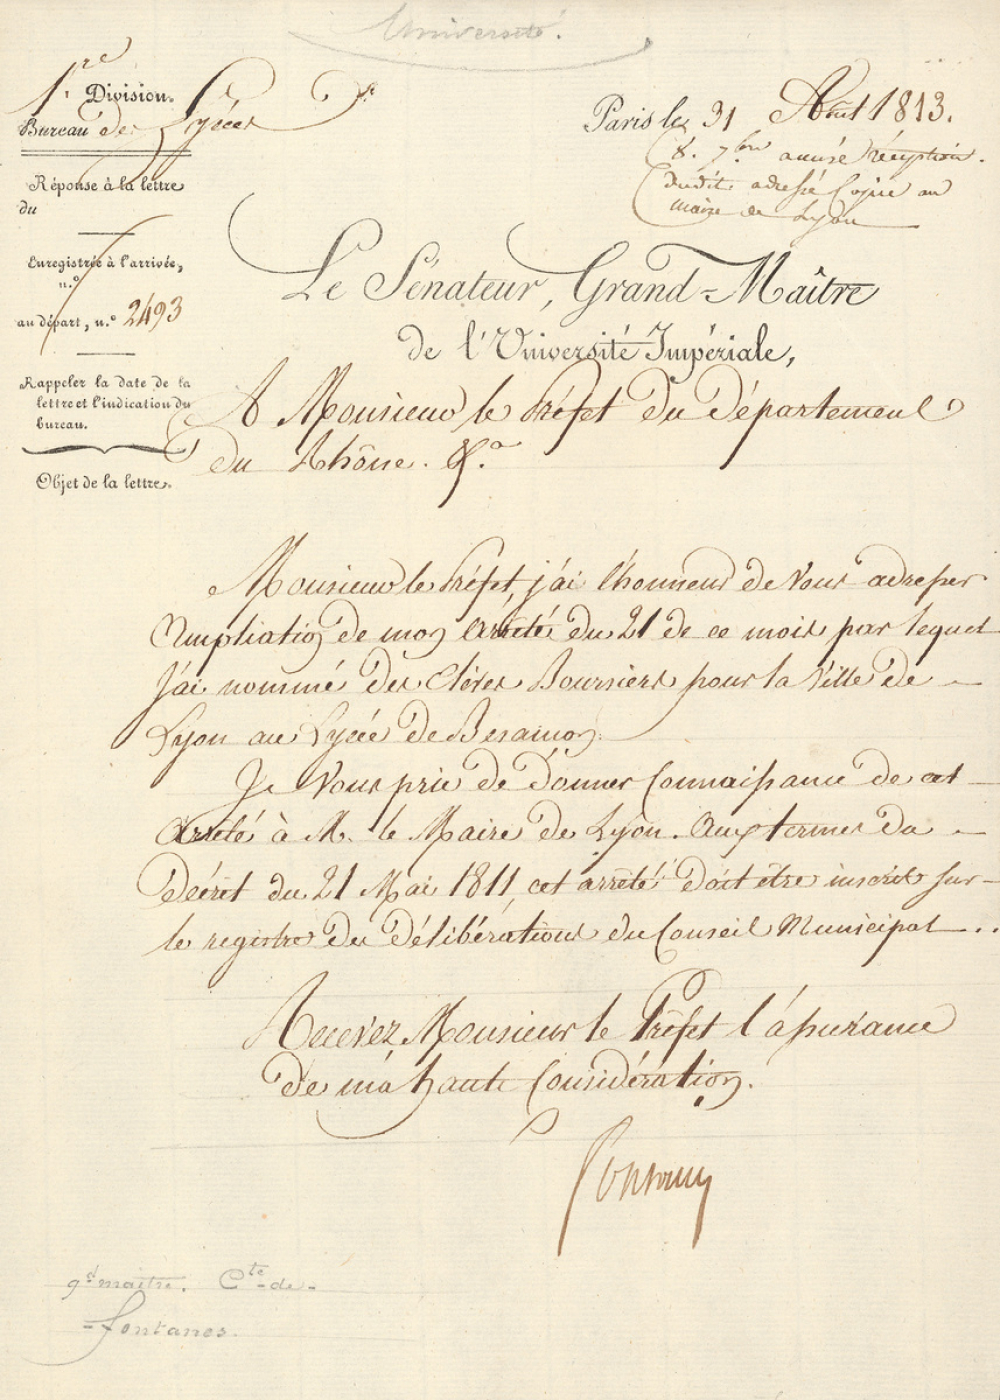 Université.
1.re Division.
Bureau des Lycées
Réponse à la lettre
du
Enregistrée à l'arrivée,
n.o
au départ, n.o 2493
Rappeler la date de la
lettre et l'indication du
bureau.
Objet de la lettre.
Paris le 31 Août 1813.
8. 7bre accusé réception.
dudit adressé Copie au
maire de Lyon
Le Sénateur, Grand-Maître
de l'Université Impériale,
A Monsieur le Préfet du Département
du Rhône. &.a
Monsieur le Préfet, j'ai l'honneur de Vous adresser
Ampliation de mon Arrêté du 21 de ce mois par lequel
J'ai nommé des Elèves Boursiers pour la Ville de
Lyon au Lycée de Besançon.
Je Vous prie de donner Connaissance de cet
Arrêté à M. le Maire de Lyon. Aux termes du
Décret du 21 Mai 1811, cet arrêté doit être inscrit sur
le registre des délibérations du Conseil Municipal..
Recevez, Monsieur le Préfet l'assurance
de ma haute Considération.
Fontanes
gd maitre. Cte de
fontanes.